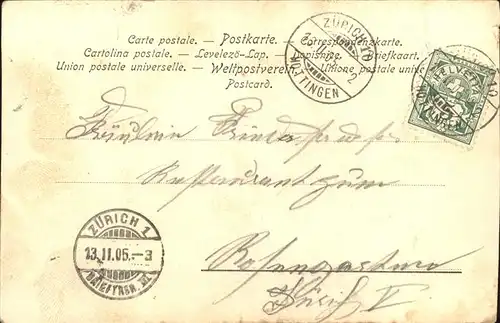 Carte postale. — Postkarte. — Correspondenzkarte.
Cartolina postale. — Levelező-Lap. — Dopisnice. — Briefkaart.
Union postale universelle. — Weltpostverein. — Unione postale univers
Postcard.
ZÜRICH
HOTTINGEN
HELVETIA
Fräulein
Restaurant zum
Rosengarten
Zürich V
ZÜRICH 1
13.II.05.-3
BRIEFTRGR.